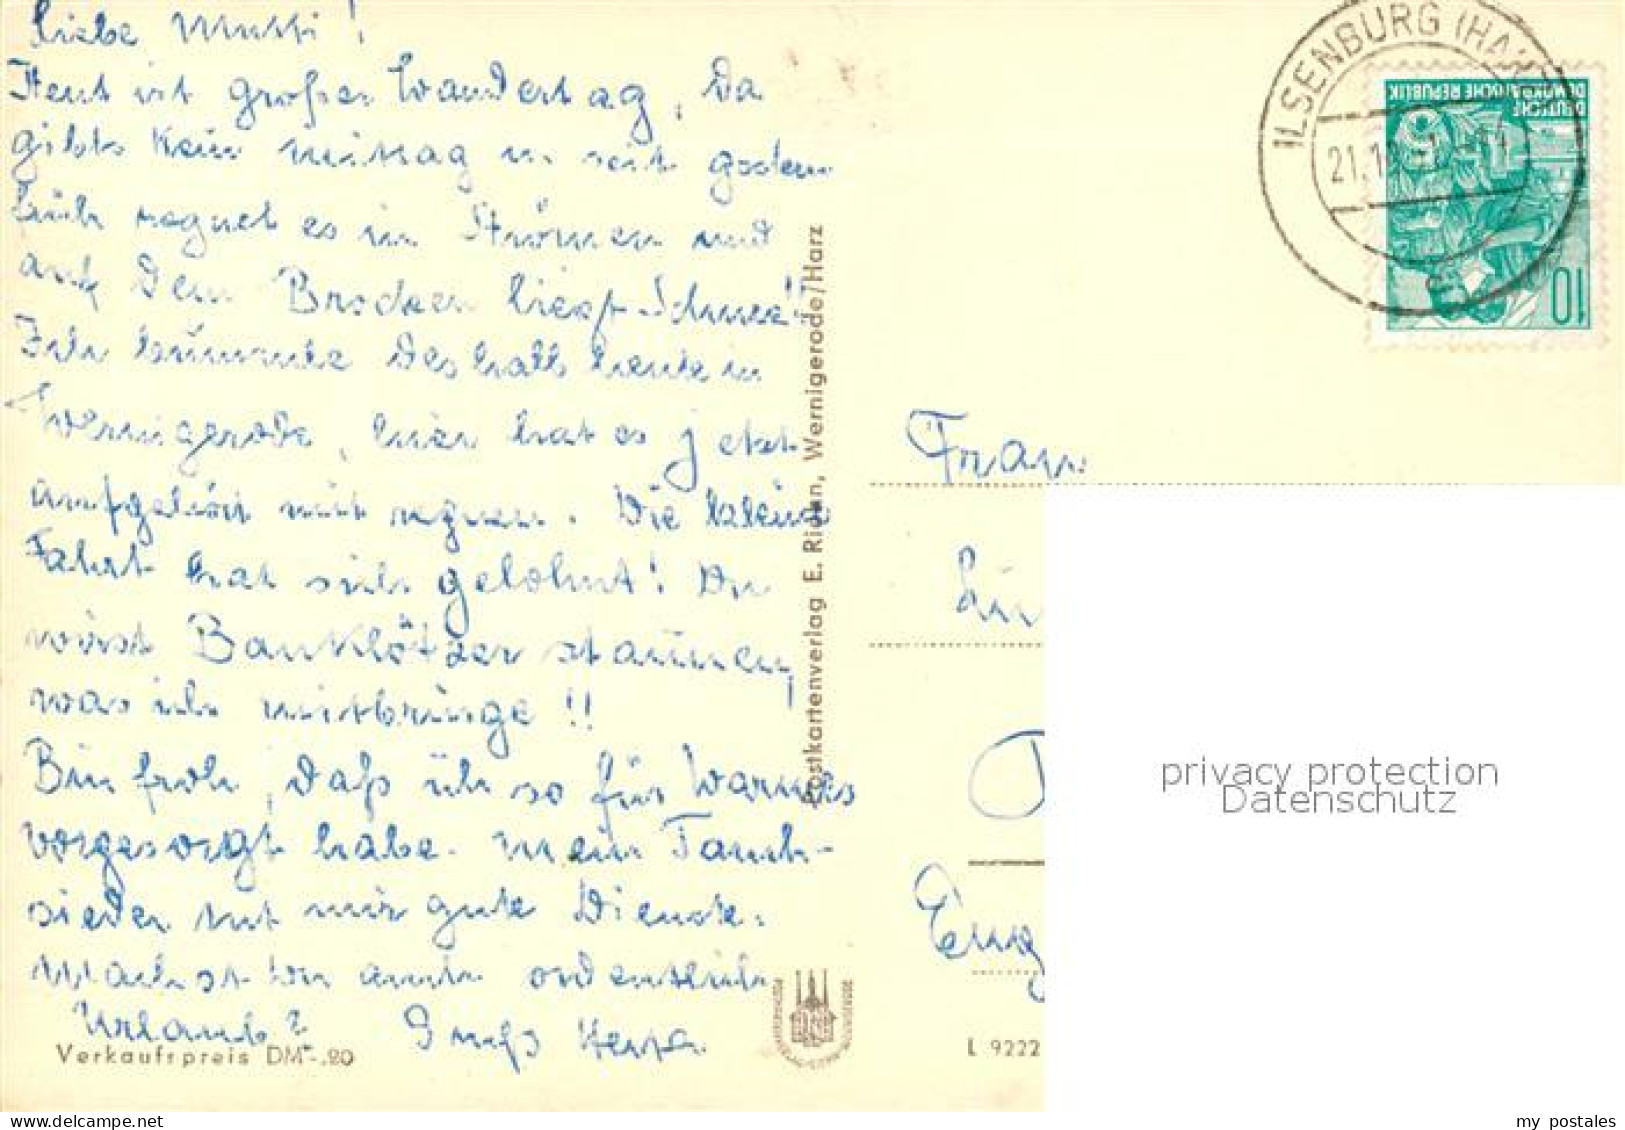 Liebe Mutti!
Heut ist großer Wandertag, Da
gibts kein Mittag u. seit gestern
früh regnet es in Strömen und
auf dem Brocken liegt Schnee!!
Ich bummle deshalb heute in
Wernigerode, hier hat es jetzt
aufgehört mit regnen. Die kleine
Fahrt hat sich gelohnt! Du
wirst Bauklötzer staunen,
was ich mitbringe!!
Bin froh, daß ich so für Warmes
vorgesorgt habe. Mein Tauch-
sieder tut mir gute Dienste.
Machst Du auch ordentlich
Urlaub? Gruß
Verkaufspreis DM -.20
Postkartenverlag E. Riehn, Wernigerode/Harz
ILSENBURG (HARZ)
21.1
DEUTSCHE
DEMOKRATISCHE REPUBLIK
10
Frau
L 9222
privacy protection
Datenschutz
my postales